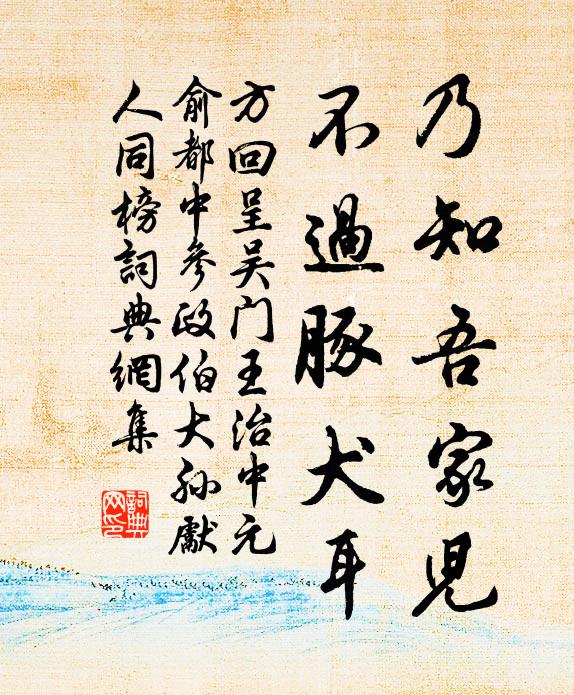 乃知吾家児
不過豚犬耳
方回呈吴门王治中元
俞都中參政伯大孙獻
人同榜詞典網集
詞典
网印